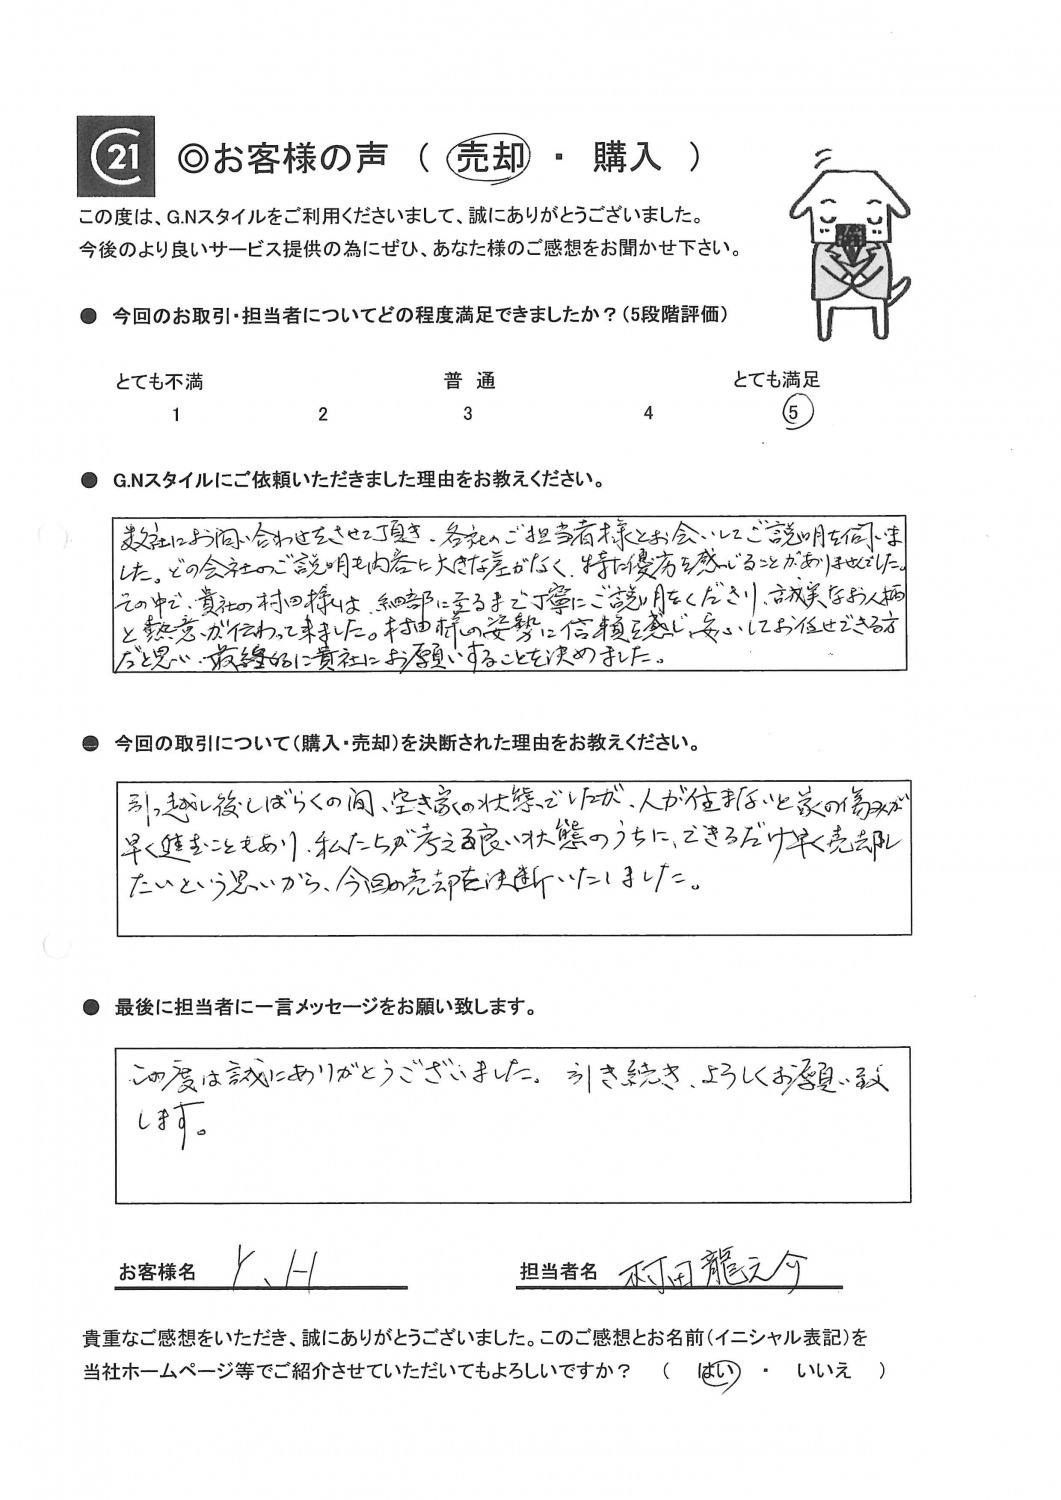 C21
◎お客様の声 ( 売却 ・ 購入 )
この度は、G.Nスタイルをご利用くださいまして、誠にありがとうございました。
今後のより良いサービス提供の為にぜひ、あなた様のご感想をお聞かせ下さい。
● 今回のお取引・担当者についてどの程度満足できましたか？(5段階評価)
とても不満 普 通 とても満足
1 2 3 4 5
● G.Nスタイルにご依頼いただきました理由をお教えください。
数社にお問い合わせをさせて頂き、各社のご担当者様とお会いしてご説明を伺いま
した。どの会社のご説明も内容に大きな差がなく、特に優劣を感じることがありませんでした。
その中で、貴社の村田様は、細部に至るまで丁寧にご説明をくださり、誠実なお人柄
と熱意が伝わって来ました。村田様の姿勢に信頼を感じ、安心してお任せできる方
だと思い、最終的に貴社にお願いすることを決めました。
● 今回の取引について(購入・売却)を決断された理由をお教えください。
引っ越し後しばらくの間、空き家の状態でしたが、人が住まないと家の傷みが
早く進むこともあり、私たちが考える良い状態のうちに、できるだけ早く売却し
たいという思いから、今回の売却を決断いたしました。
● 最後に担当者に一言メッセージをお願い致します。
この度は誠にありがとうございました。 引き続き、よろしくお願い致
します。
お客様名 Y.H 担当者名 村田龍之介
貴重なご感想をいただき、誠にありがとうございました。このご感想とお名前(イニシャル表記)を
当社ホームページ等でご紹介させていただいてもよろしいですか？ ( はい ・ いいえ )